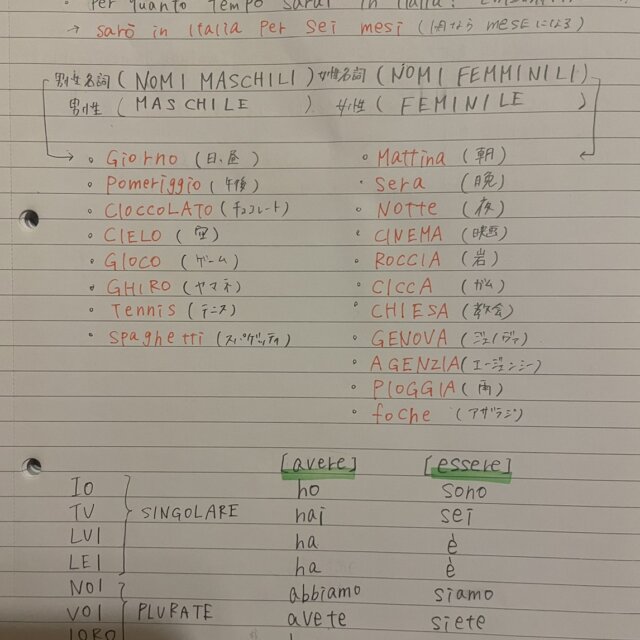 per quanto tempo sarai in Italia?
→ sarò in Italia per sei mesi (1月なら mese になる)
男性名詞 (NOMI MASCHILI) 女性名詞 (NOMI FEMMINILI)
男性 (MASCHILE) 女性 (FEMINILE)
• Giorno (日、昼) • Mattina (朝)
• Pomeriggio (午後) • Sera (晩)
• CIOCCOLATO (チョコレート) • NOTTE (夜)
• CIELO (空) • CINEMA (映画)
• GIOCO (ゲーム) • ROCCIA (岩)
• GHIRO (ヤマネ) • CICCA (ガム)
• Tennis (テニス) • CHIESA (教会)
• Spaghetti (スパゲッティ) • GENOVA (ジェノヴァ)
• AGENZIA (エージェンシー)
• PIOGGIA (雨)
• foche (アザラシ)
[avere] [essere]
IO ho sono
TU SINGOLARE hai sei
LUI ha è
LEI ha è
NOI abbiamo siamo
VOI PLURATE avete siete
LORO